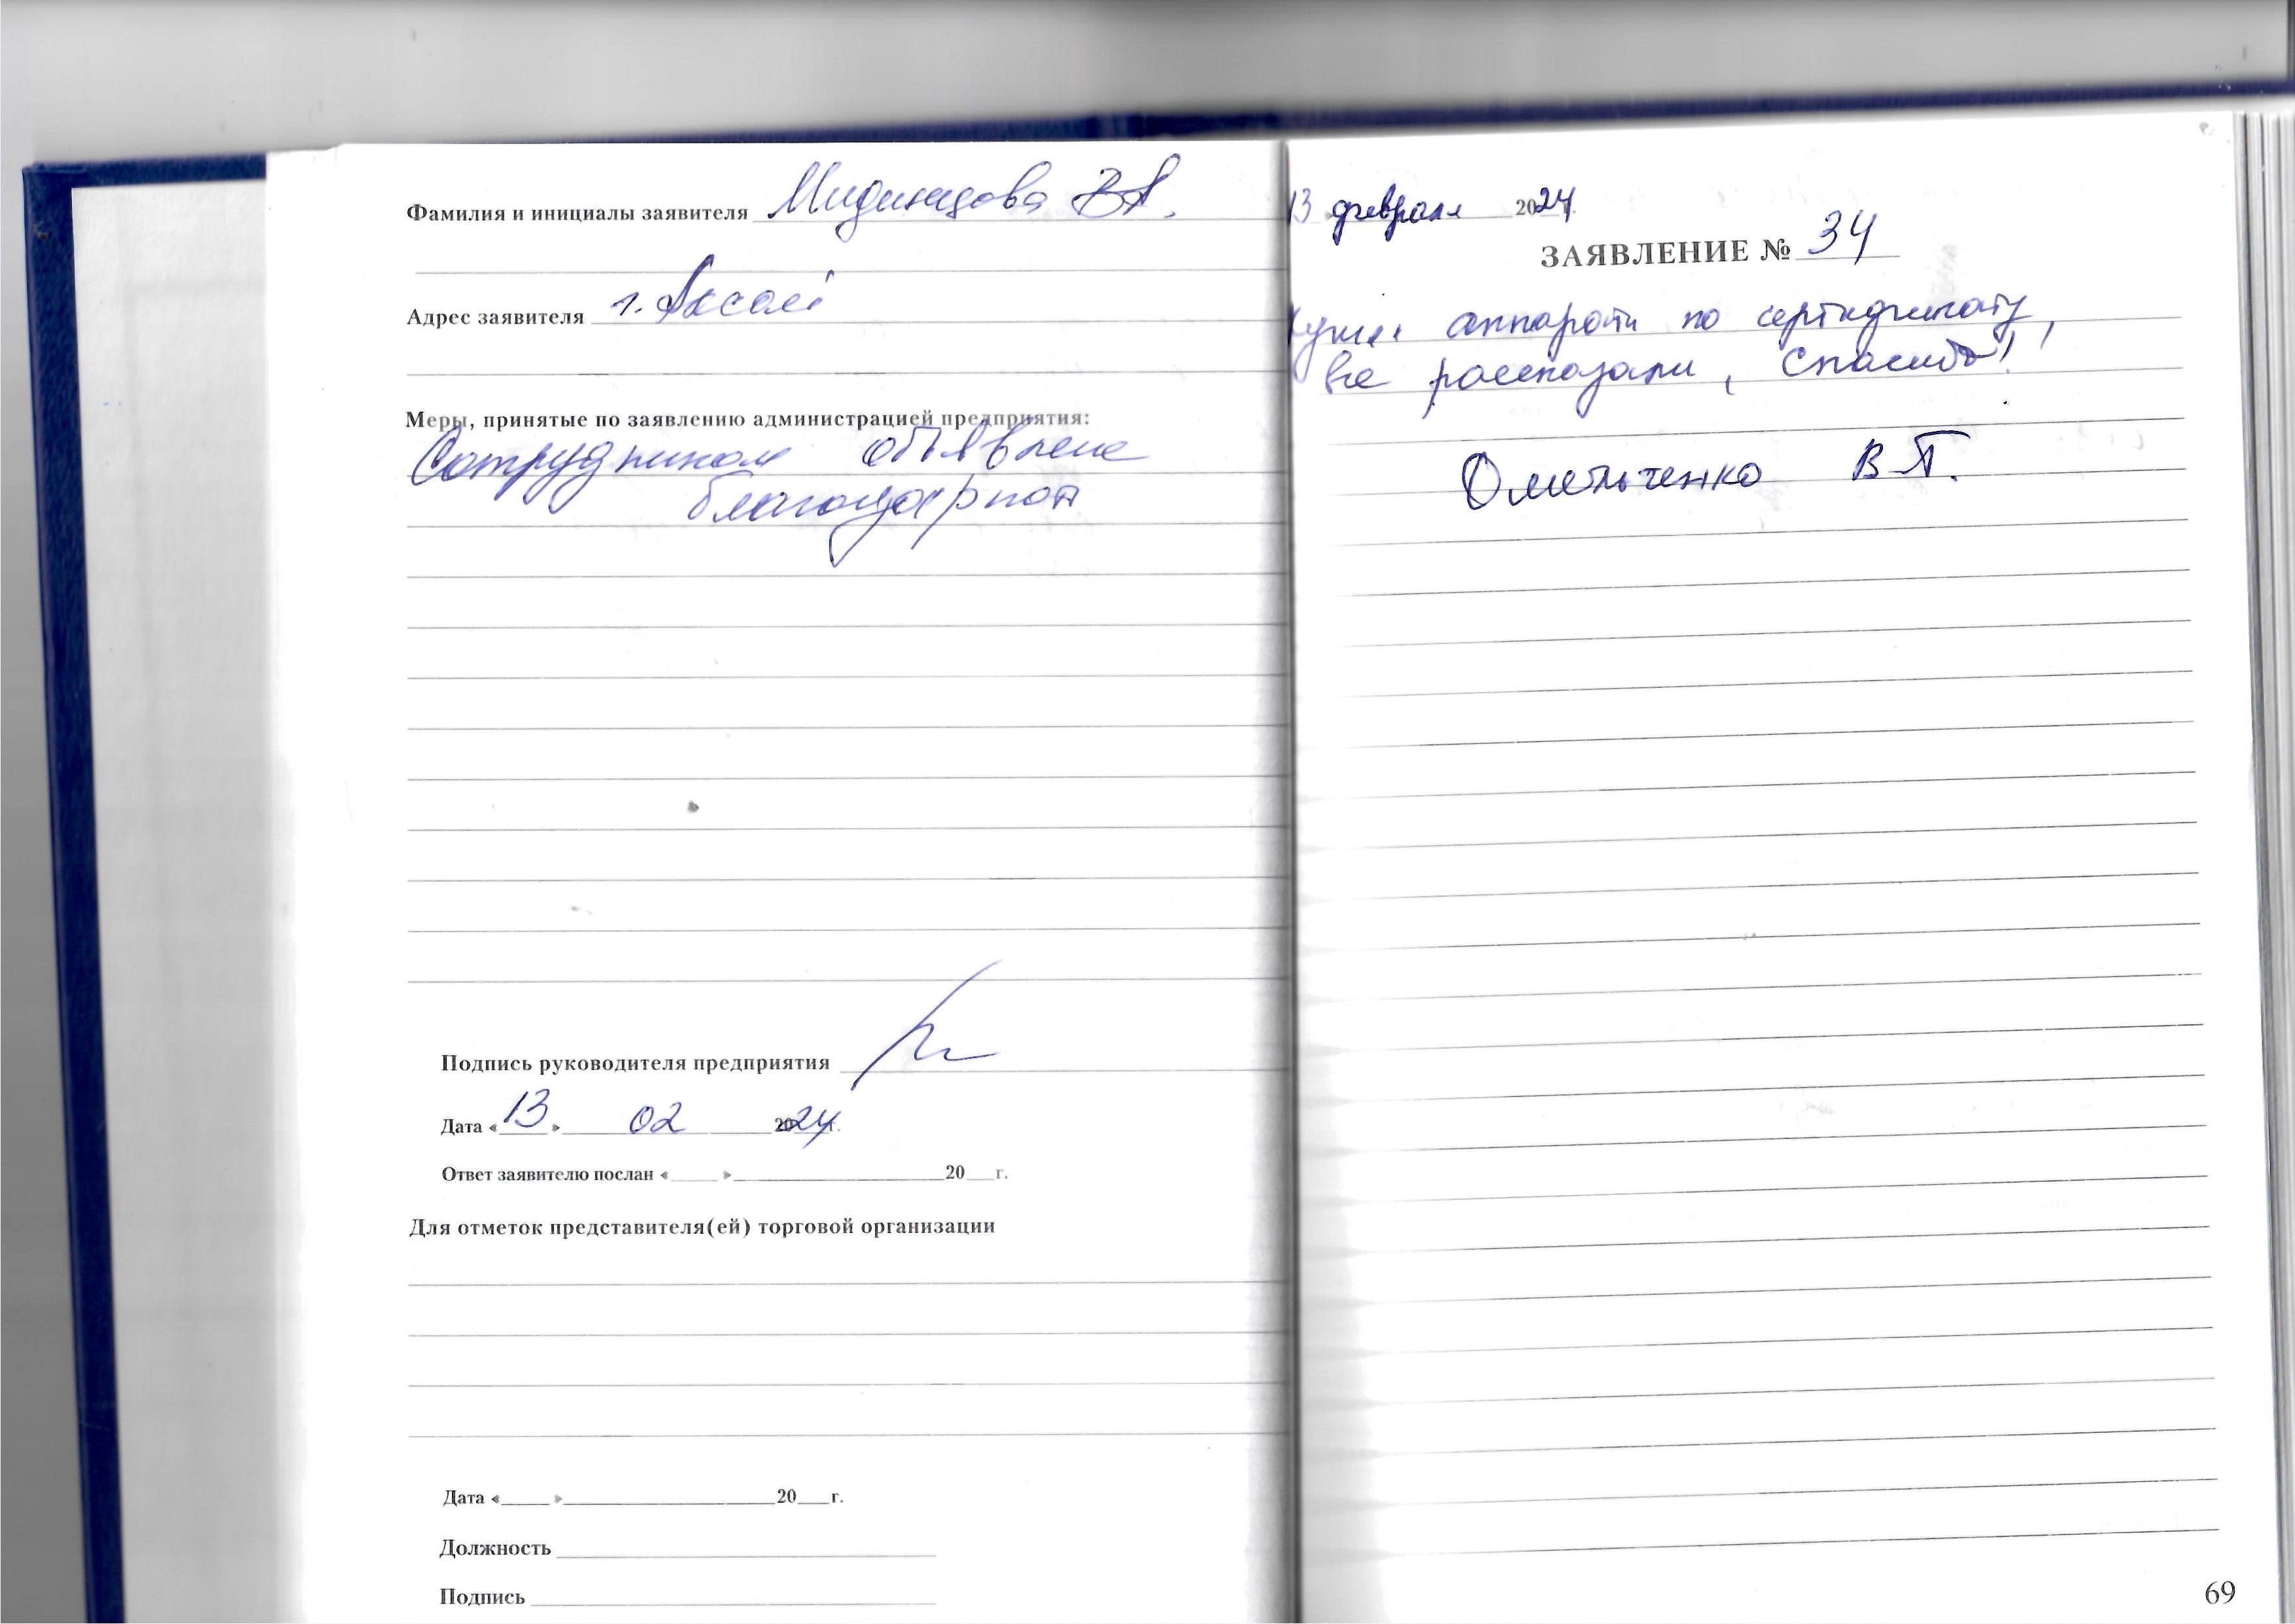 Фамилия и инициалы заявителя В А.
Адрес заявителя г. Аксай
Меры, принятые по заявлению администрацией предприятия:
Сотрудникам объявлена
благодарност
Подпись руководителя предприятия
Дата «13» 02 2024г.
Ответ заявителю послан « » 20 г.
Для отметок представителя(ей) торговой организации
Дата « » 20 г.
Должность
Подпись
13 февраля 2024 г.
ЗАЯВЛЕНИЕ № 34
аппараты по сертификату,
все рассказали, Спасибо!!
Омельченко В П.
69